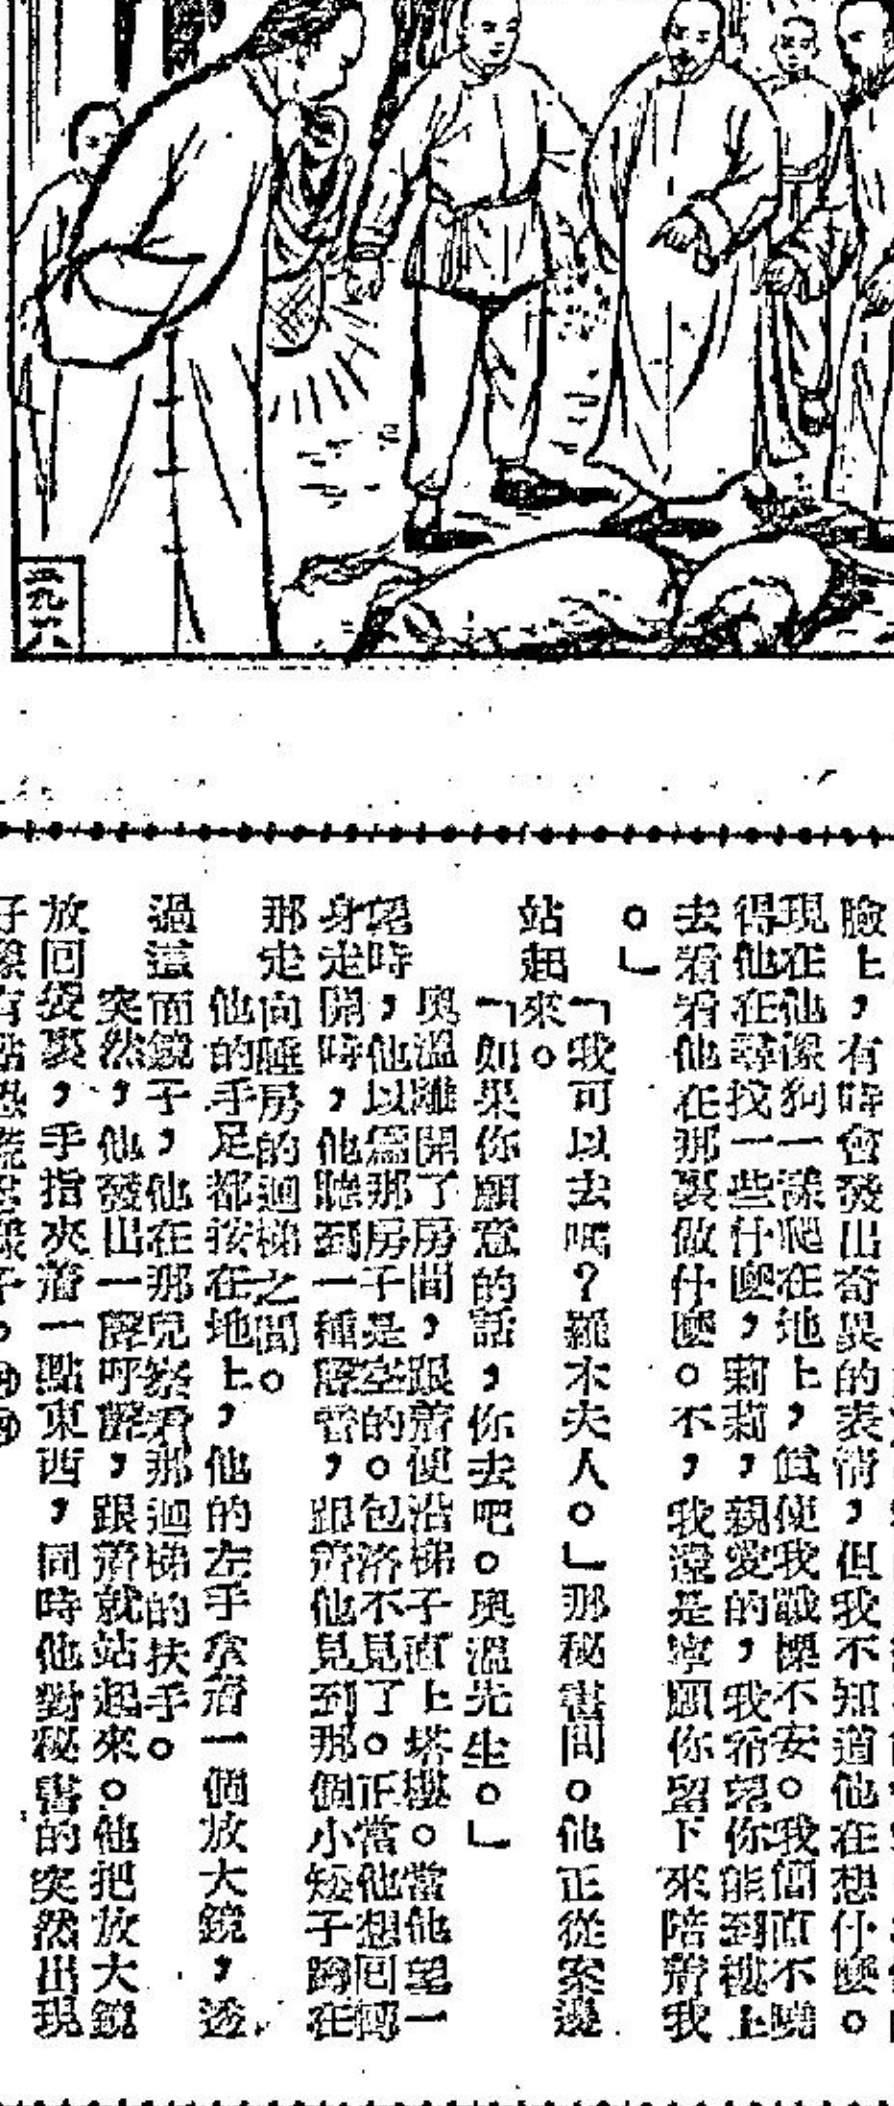 五九六
臉上，有時會發出奇異的表情，但我不知道他在想什麼。
現在他像狗一樣爬在地上，眞使我戰慄不安。我簡直不曉
得他在尋找一些什麼，莉莉，親愛的，我希望你能到樓上
去看看他在那裏做什麼。不，我還是寧願你留下來陪着我
。」
「我可以去嗎？羅木夫人。」那秘書問。他正從案邊
站起來。
「如果你願意的話，你去吧。奧溫先生。」
奧溫離開了房間，跟着便沿梯子直上塔樓。當他望一
望時，他以爲那房子是空的。包洛不見了。正當他想回轉
身走開時，他聽到一種聲音，跟着他見到那個小矮子蹲在
那走向睡房的迴梯之間。
他的手足都按在地上，他的左手拿着一個放大鏡，透
過這面鏡子，他在那兒察看那迴梯的扶手。
突然，他發出一聲呼聲，跟着就站起來。他把放大鏡
放回袋裏，手指夾着一點東西，同時他對秘書的突然出現
好像有點恐慌的樣子。